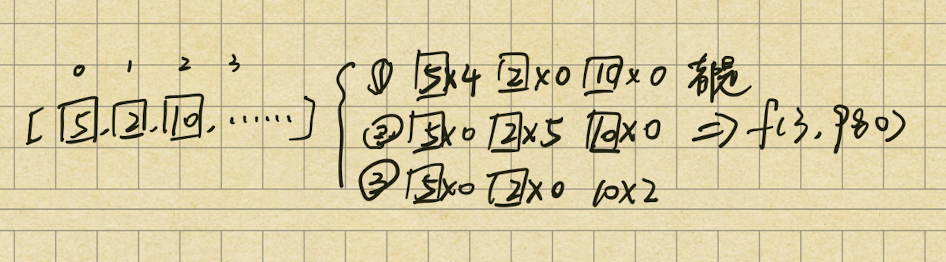 0 1 2 3
[ 5, 2, 10, ...... ]
① 5×4 2×0 10×0 都是
② 5×0 2×5 10×0 => f(3, 980)
③ 5×0 2×0 10×2